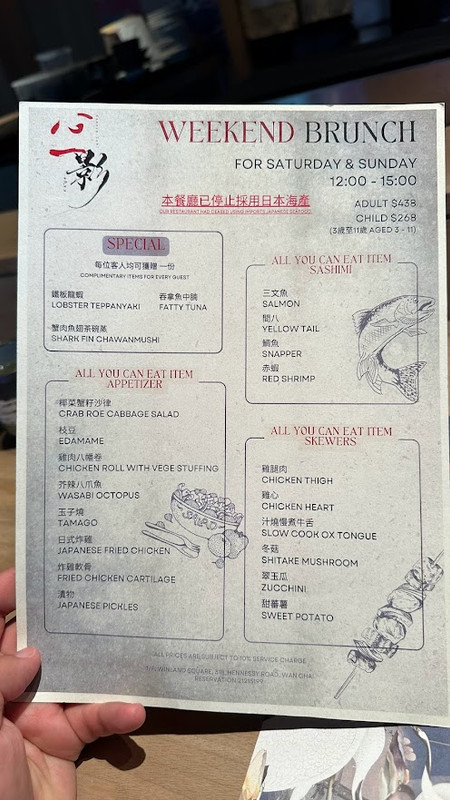 心一影
WEEKEND BRUNCH
FOR SATURDAY & SUNDAY
12:00 - 15:00
本餐廳已停止採用日本海產
OUR RESTAURANT HAD CEASED USING IMPORTS JAPANESE SEAFOOD
ADULT $438
CHILD $268
(3歲至11歲 AGED 3 - 11)
SPECIAL
每位客人均可獲贈一份
COMPLIMENTARY ITEMS FOR EVERY GUEST
鐵板龍蝦
LOBSTER TEPPANYAKI
吞拿魚中腩
FATTY TUNA
蟹肉魚翅茶碗蒸
SHARK FIN CHAWANMUSHI
ALL YOU CAN EAT ITEM
SASHIMI
三文魚
SALMON
間八
YELLOW TAIL
鯛魚
SNAPPER
赤蝦
RED SHRIMP
ALL YOU CAN EAT ITEM
APPETIZER
椰菜蟹籽沙律
CRAB ROE CABBAGE SALAD
枝豆
EDAMAME
雞肉八幡卷
CHICKEN ROLL WITH VEGE STUFFING
芥辣八爪魚
WASABI OCTOPUS
玉子燒
TAMAGO
日式炸雞
JAPANESE FRIED CHICKEN
炸雞軟骨
FRIED CHICKEN CARTILAGE
漬物
JAPANESE PICKLES
ALL YOU CAN EAT ITEM
SKEWERS
雞腿肉
CHICKEN THIGH
雞心
CHICKEN HEART
汁燒慢煮牛舌
SLOW COOK OX TONGUE
冬菇
SHITAKE MUSHROOM
翠玉瓜
ZUCCHINI
甜蕃薯
SWEET POTATO
ALL PRICES ARE SUBJECT TO 10% SERVICE CHARGE
WINLAND SQUARE, HENNESSY ROAD, WAN CHAI
RESERVATION